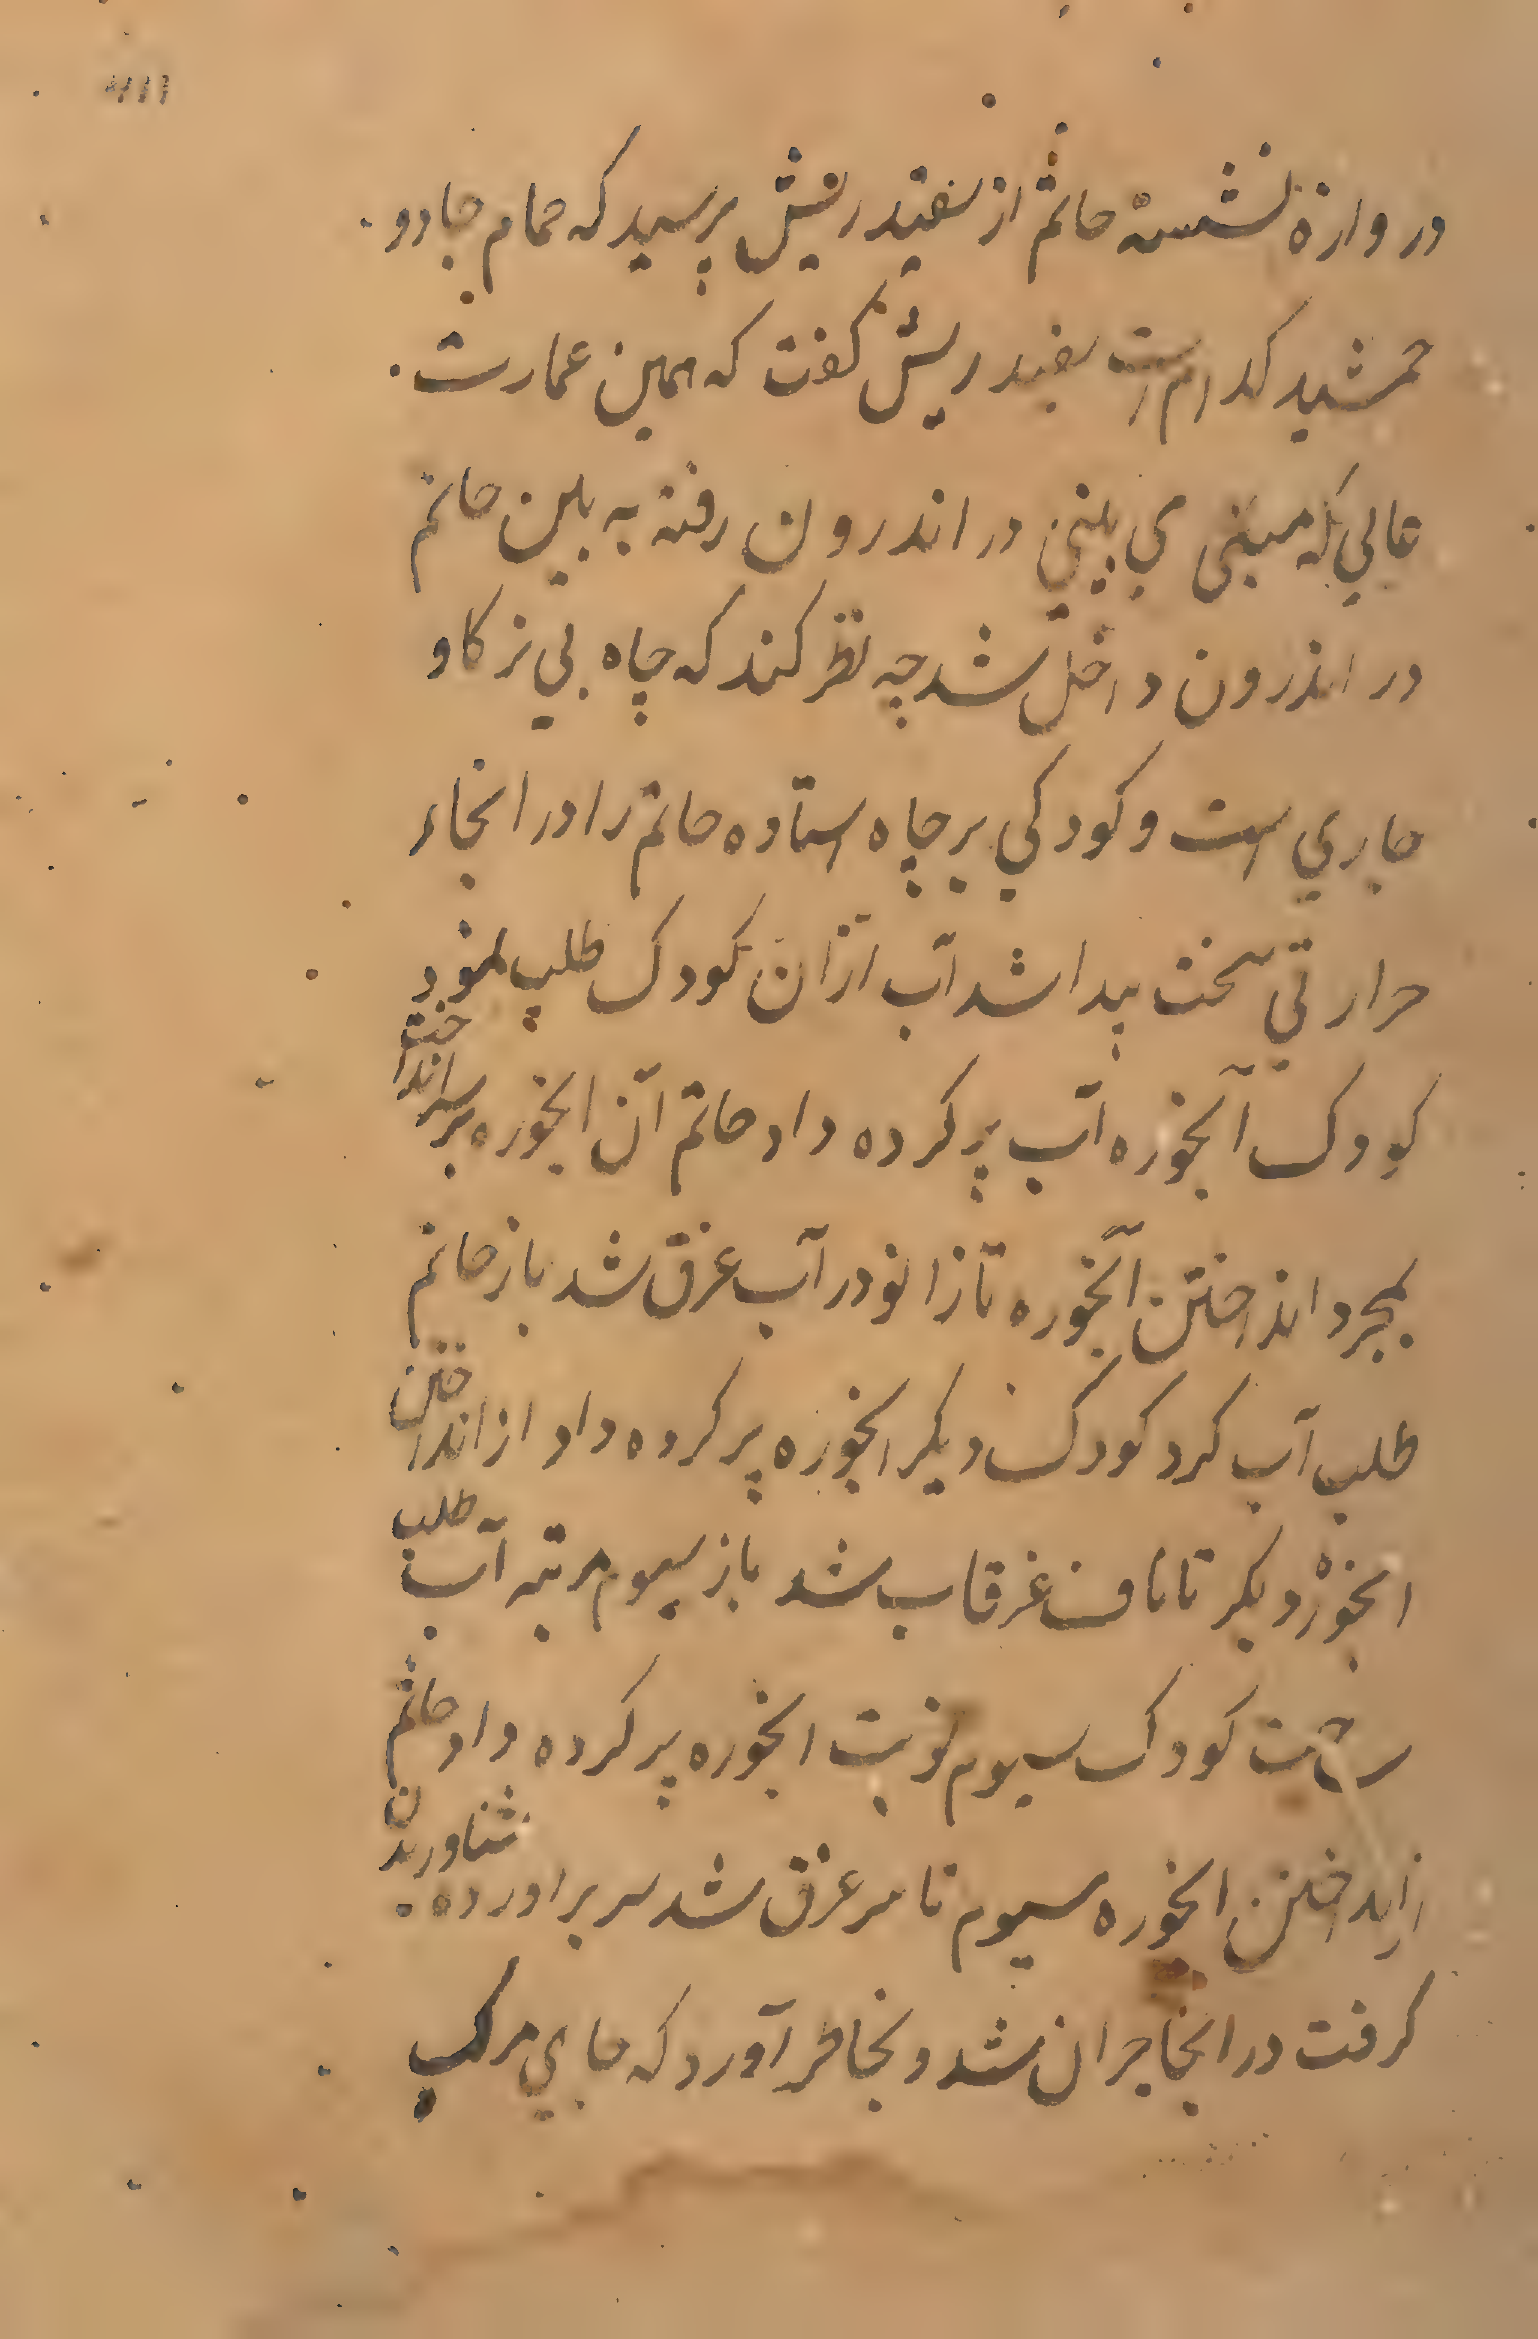 دروازهٔ نشسته حاتم از سفید ریش پرسید که حمام جادو
جمشید کدام است سفید ریش کفت که همین عمارت
عالي که می بیني در اندرون رفته به بین حاتم
در اندرون داخل شد چه نظر کند که چاه بي نر کاو
جاري است و کودکي بر چاه استاده حاتم را در انجاء
حرارتي سخت پیدا شد آب ازان کودک طلب نمود
کودک آبخوره آب پر کرده داد حاتم آن ابخوره بر سر انداخت
بمجرد انداختن آبخوره تا زانو در آب غرق شد باز حاتم
طلب آب کرد کودک دیکر ابخوره پر کرده داد از انداختن
ابخورهٔ دیکر تا ناف غرقاب شد باز سیوم مرتبه آب طلب
کودک سیوم نوبت ابخوره پر کرده داد حاتم
از انداختن ابخوره سیوم تا سر غرق شد سر بر اورده شناوریدن
کرفت در انجا حیران شد و بخاطر آورد که جاي مرکب